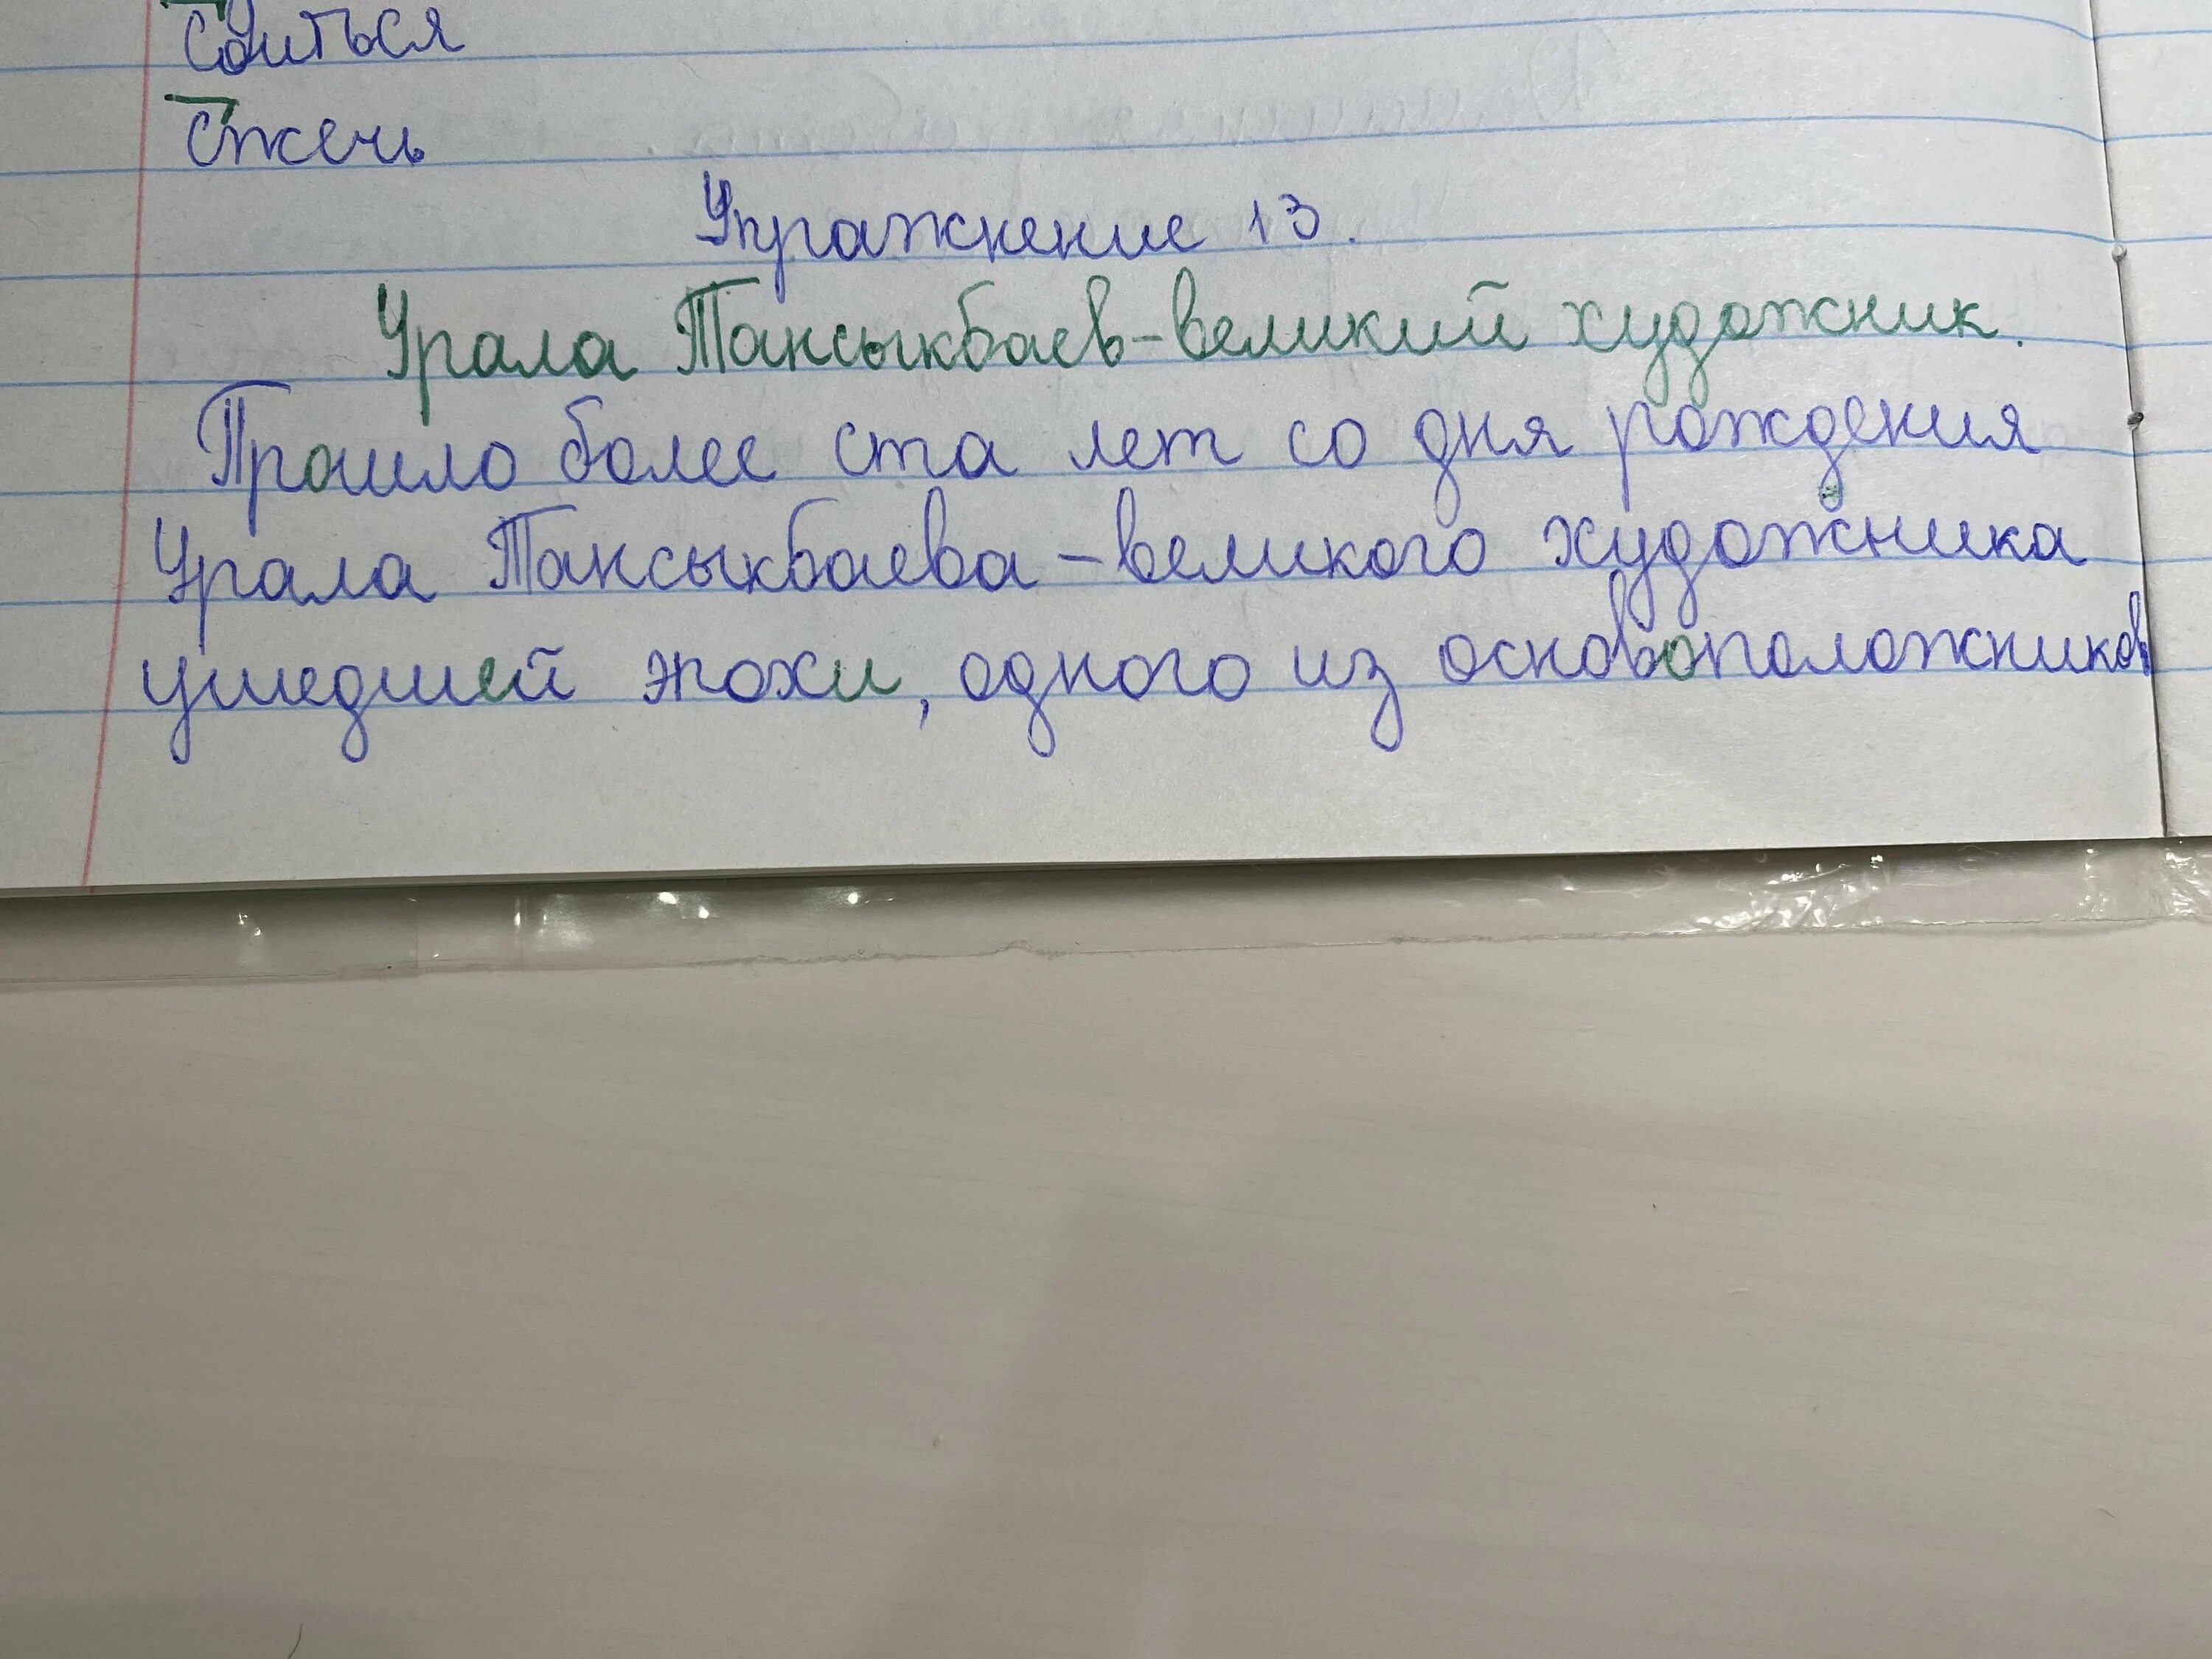 сжечь
Упражнение 13.
Урала Тансыкбаев-великий художник.
Прошло более ста лет со дня рождения
Урала Тансыкбаева-великого художника
ушедшей эпохи, одного из основоположников